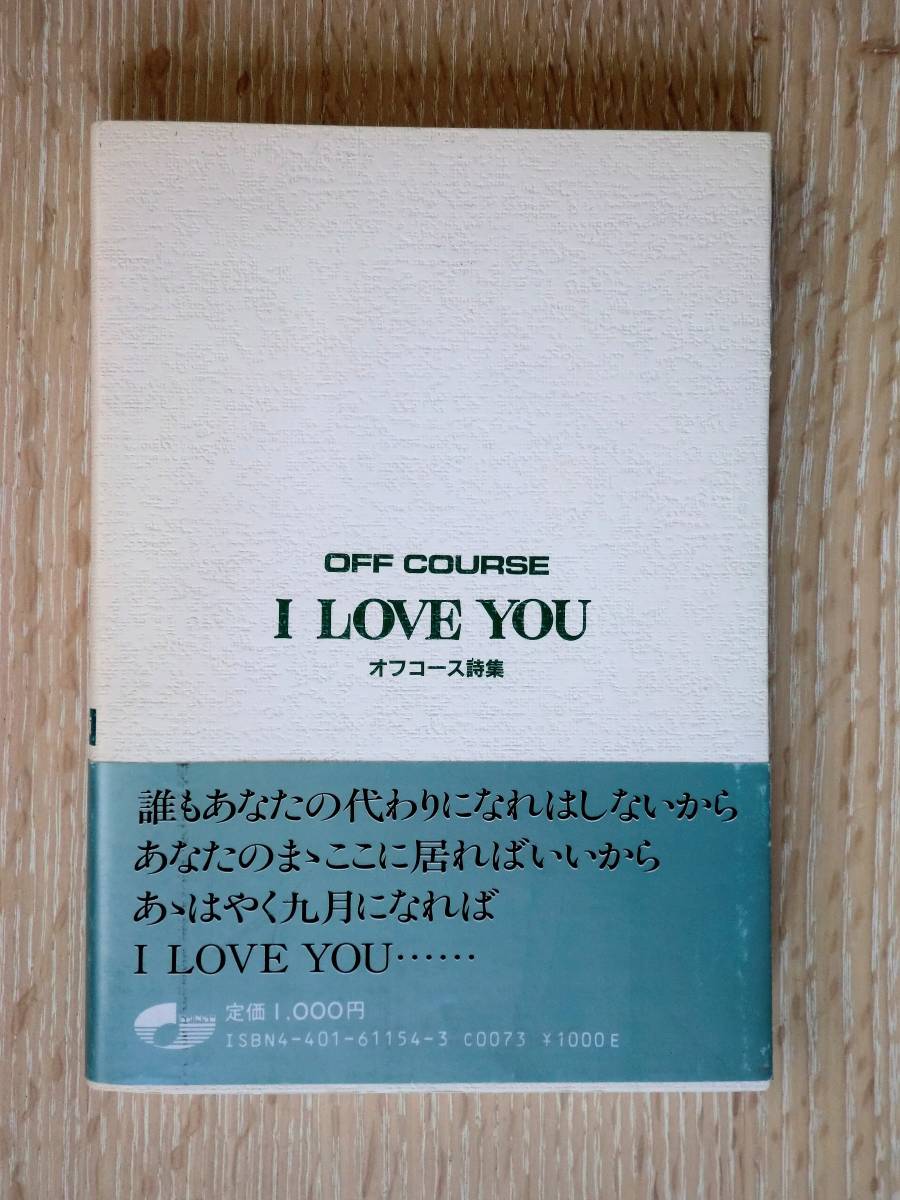 OFF COURSE
I LOVE YOU
オフコース詩集
誰もあなたの代わりになれはしないから
あなたのまゝここに居ればいいから
あゝはやく九月になれば
I LOVE YOU……
定価1,000円
ISBN4-401-61154-3 C0073 ¥1000E